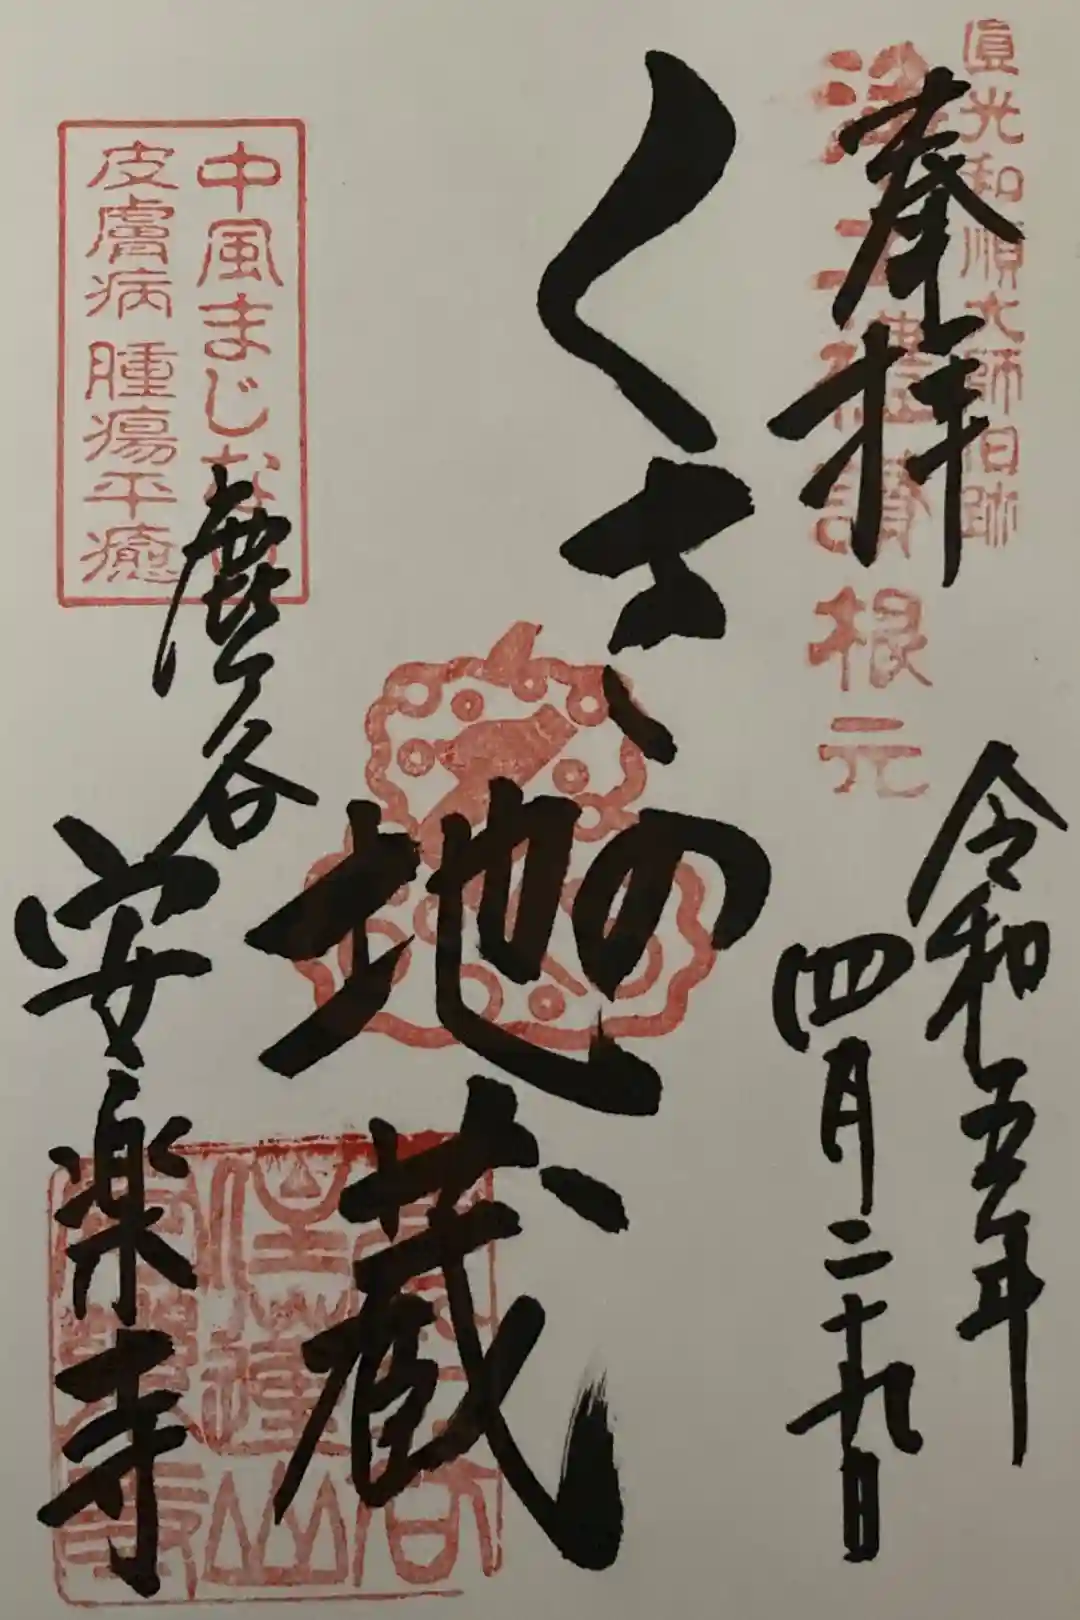 圓光和順大師旧跡
浄土礼讃根元
奉拝
令和五年
四月二十九日
くさの地蔵
中風まじない
皮膚病 腫瘍平癒
鹿谷
安楽寺
住蓮山
安楽寺